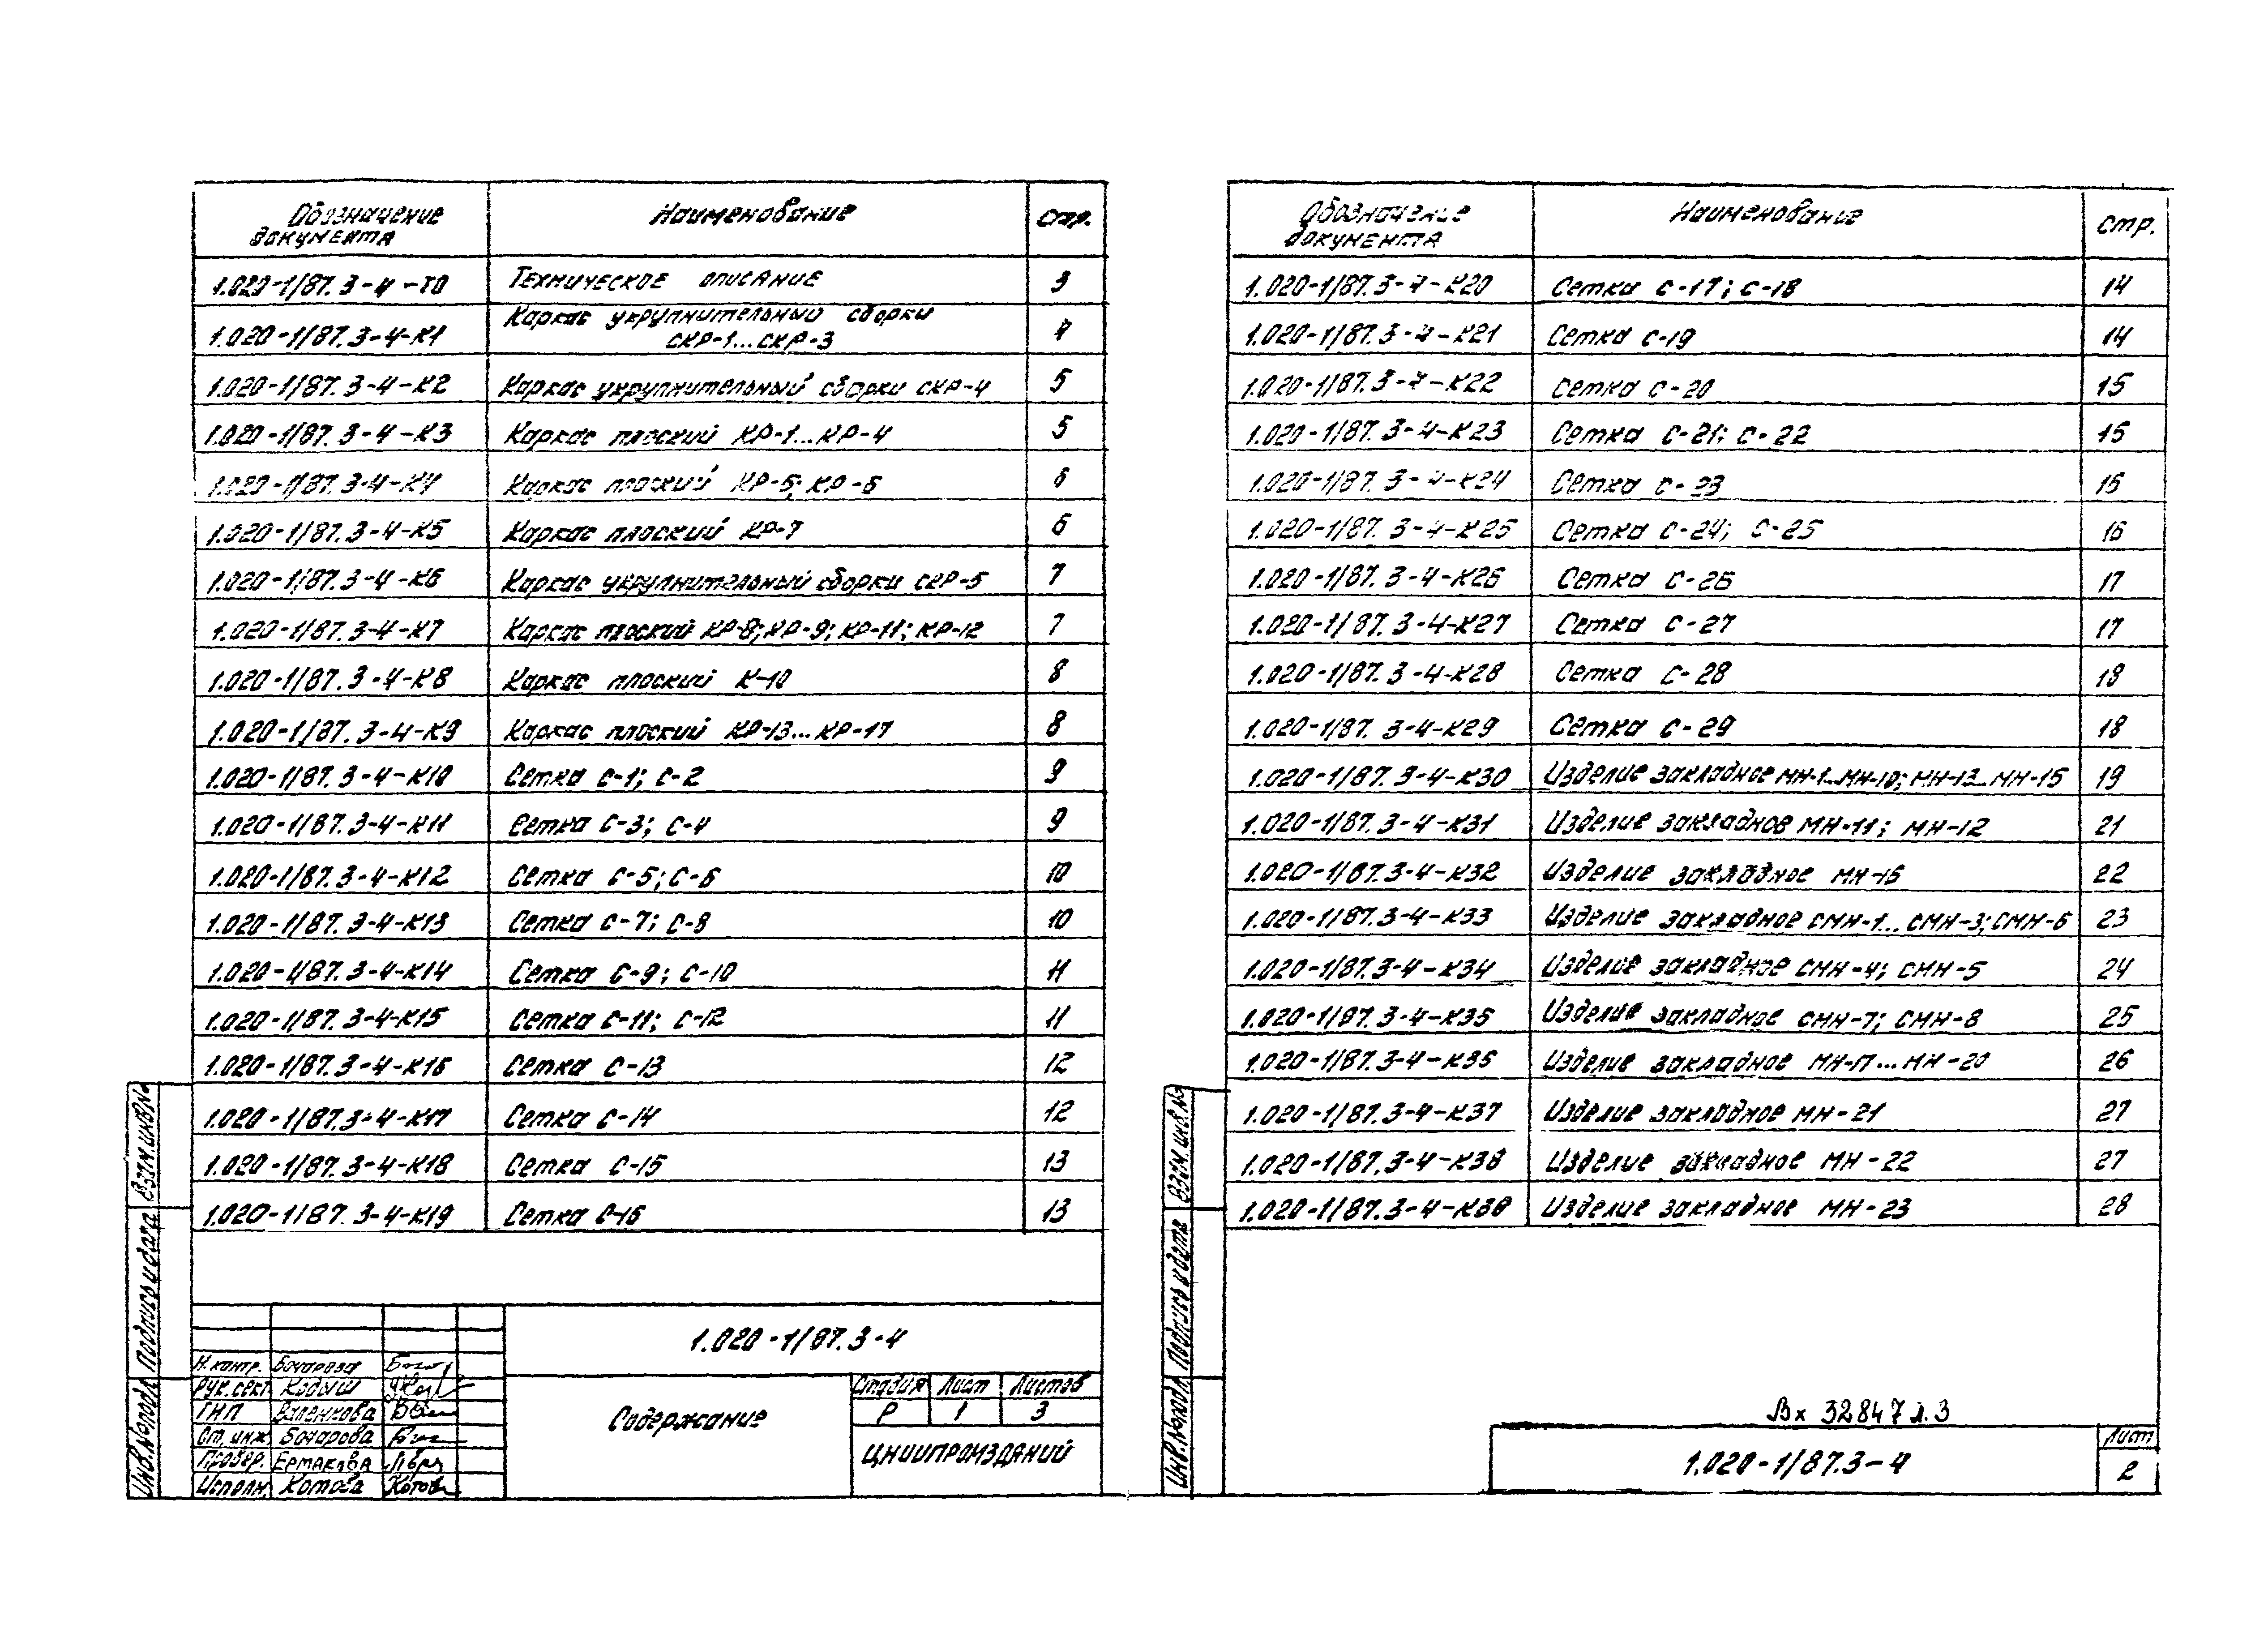 Обозначение документа Наименование Стр.
1.020-1/87.3-4-ТО Техническое описание 3
1.020-1/87.3-4-К1 Каркас укрупнительный сборки СКР-1...СКР-3 4
1.020-1/87.3-4-К2 Каркас укрупнительный сборки СКР-4 5
1.020-1/87.3-4-К3 Каркас плоский КР-1...КР-4 5
1.020-1/87.3-4-К4 Каркас плоский КР-5; КР-6 6
1.020-1/87.3-4-К5 Каркас плоский КР-7 6
1.020-1/87.3-4-К6 Каркас укрупнительный сборки СКР-5 7
1.020-1/87.3-4-К7 Каркас плоский КР-8; КР-9; КР-11; КР-12 7
1.020-1/87.3-4-К8 Каркас плоский К-10 8
1.020-1/87.3-4-К9 Каркас плоский КР-13...КР-17 8
1.020-1/87.3-4-К10 Сетка С-1; С-2 9
1.020-1/87.3-4-К11 Сетка С-3; С-4 9
1.020-1/87.3-4-К12 Сетка С-5; С-6 10
1.020-1/87.3-4-К13 Сетка С-7; С-8 10
1.020-1/87.3-4-К14 Сетка С-9; С-10 11
1.020-1/87.3-4-К15 Сетка С-11; С-12 11
1.020-1/87.3-4-К16 Сетка С-13 12
1.020-1/87.3-4-К17 Сетка С-14 12
1.020-1/87.3-4-К18 Сетка С-15 13
1.020-1/87.3-4-К19 Сетка С-16 13
Взам. инв. №
Подпись и дата
Инв. № подл.
1.020-1/87.3-4
Н. контр. Бочарова
Рук. сект. Кодыш
ГНП Валенкова
Ст. инж. Бочарова
Провер. Ермакова
Исполн. Котова
Содержание
Стадия Лист Листов
Р 1 3
ЦНИИПРОМЗДАНИЙ
Обозначение документа Наименование Стр.
1.020-1/87.3-4-К20 Сетка С-17; С-18 14
1.020-1/87.3-4-К21 Сетка С-19 14
1.020-1/87.3-4-К22 Сетка С-20 15
1.020-1/87.3-4-К23 Сетка С-21; С-22 15
1.020-1/87.3-4-К24 Сетка С-23 16
1.020-1/87.3-4-К25 Сетка С-24; С-25 16
1.020-1/87.3-4-К26 Сетка С-26 17
1.020-1/87.3-4-К27 Сетка С-27 17
1.020-1/87.3-4-К28 Сетка С-28 18
1.020-1/87.3-4-К29 Сетка С-29 18
1.020-1/87.3-4-К30 Изделие закладное МН-1...МН-10; МН-13...МН-15 19
1.020-1/87.3-4-К31 Изделие закладное МН-11; МН-12 21
1.020-1/87.3-4-К32 Изделие закладное МН-16 22
1.020-1/87.3-4-К33 Изделие закладное СМН-1...СМН-3; СМН-6 23
1.020-1/87.3-4-К34 Изделие закладное СМН-4; СМН-5 24
1.020-1/87.3-4-К35 Изделие закладное СМН-7; СМН-8 25
1.020-1/87.3-4-К36 Изделие закладное МН-17...МН-20 26
1.020-1/87.3-4-К37 Изделие закладное МН-21 27
1.020-1/87.3-4-К38 Изделие закладное МН-22 27
1.020-1/87.3-4-К38 Изделие закладное МН-23 28
Взам. инв. №
Подпись и дата
Инв. № подл.
Вх 32847 л.3
1.020-1/87.3-4
Лист
2